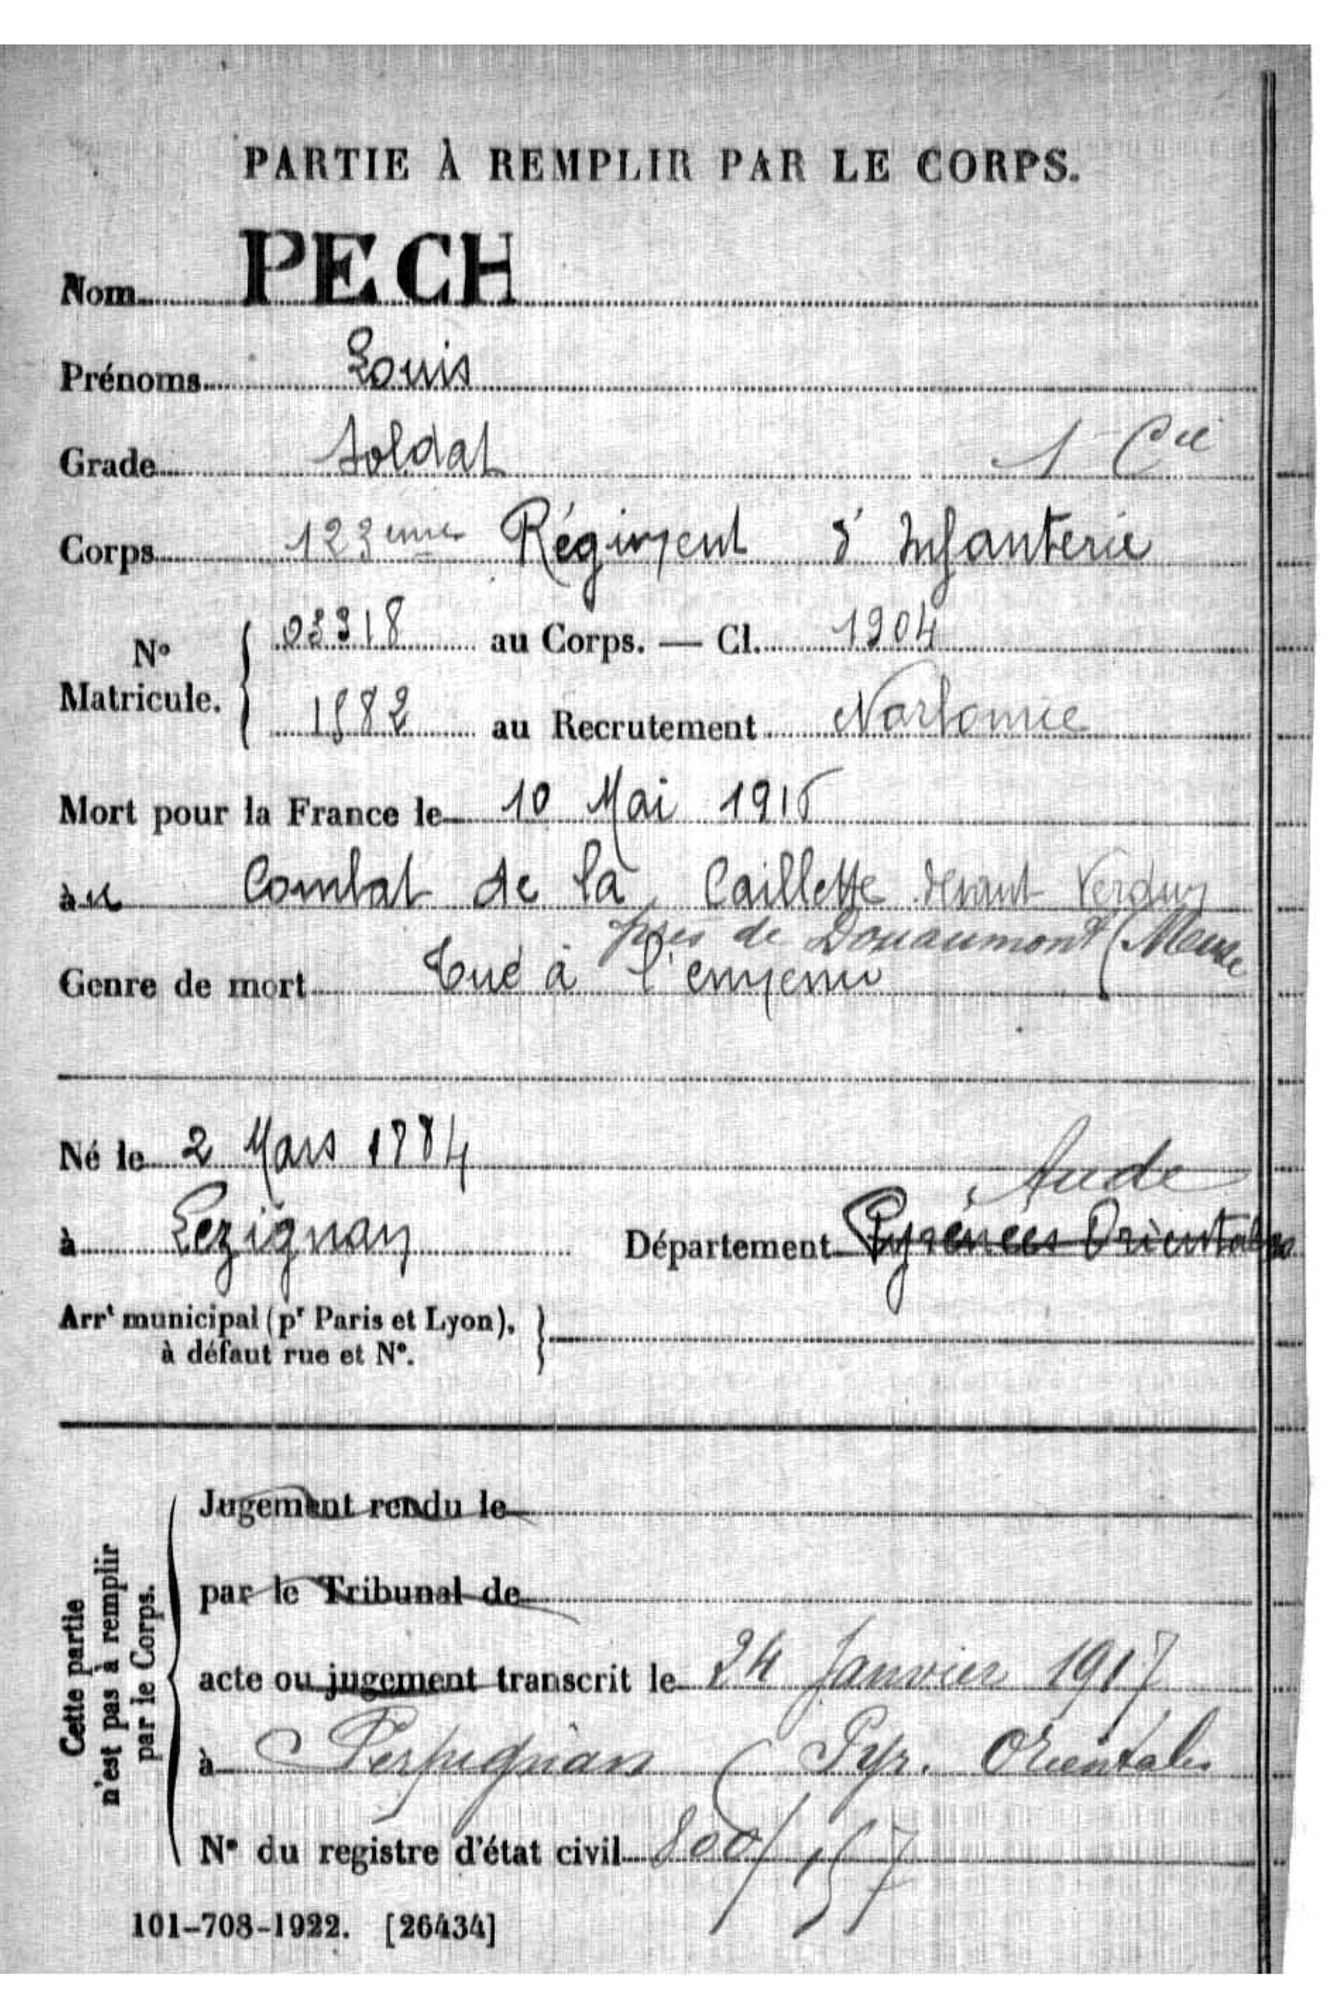 PARTIE À REMPLIR PAR LE CORPS.
Nom PECH
Prénoms Louis
Grade Soldat 1 Cie
Corps 123eme Régiment d'Infanterie
N° Matricule. { 03318 au Corps. — Cl. 1904
1582 au Recrutement Narbonne
Mort pour la France le 10 Mai 1916
à u Combat de la Caillette devant Verdun
près de Douaumont (Meuse
Genre de mort Tué à l'ennemi
Né le 2 Mars 1884
Aude
à Lezignan Département Pyrénées Orientales
Arrt municipal (pr Paris et Lyon),
à défaut rue et N°.
Cette partie
n'est pas à remplir
par le Corps.
Jugement rendu le
par le Tribunal de
acte ou jugement transcrit le 24 Janvier 1917
à Perpignan (Pyr. Orientales
N° du registre d'état civil 800/157
101-708-1922. [26434]